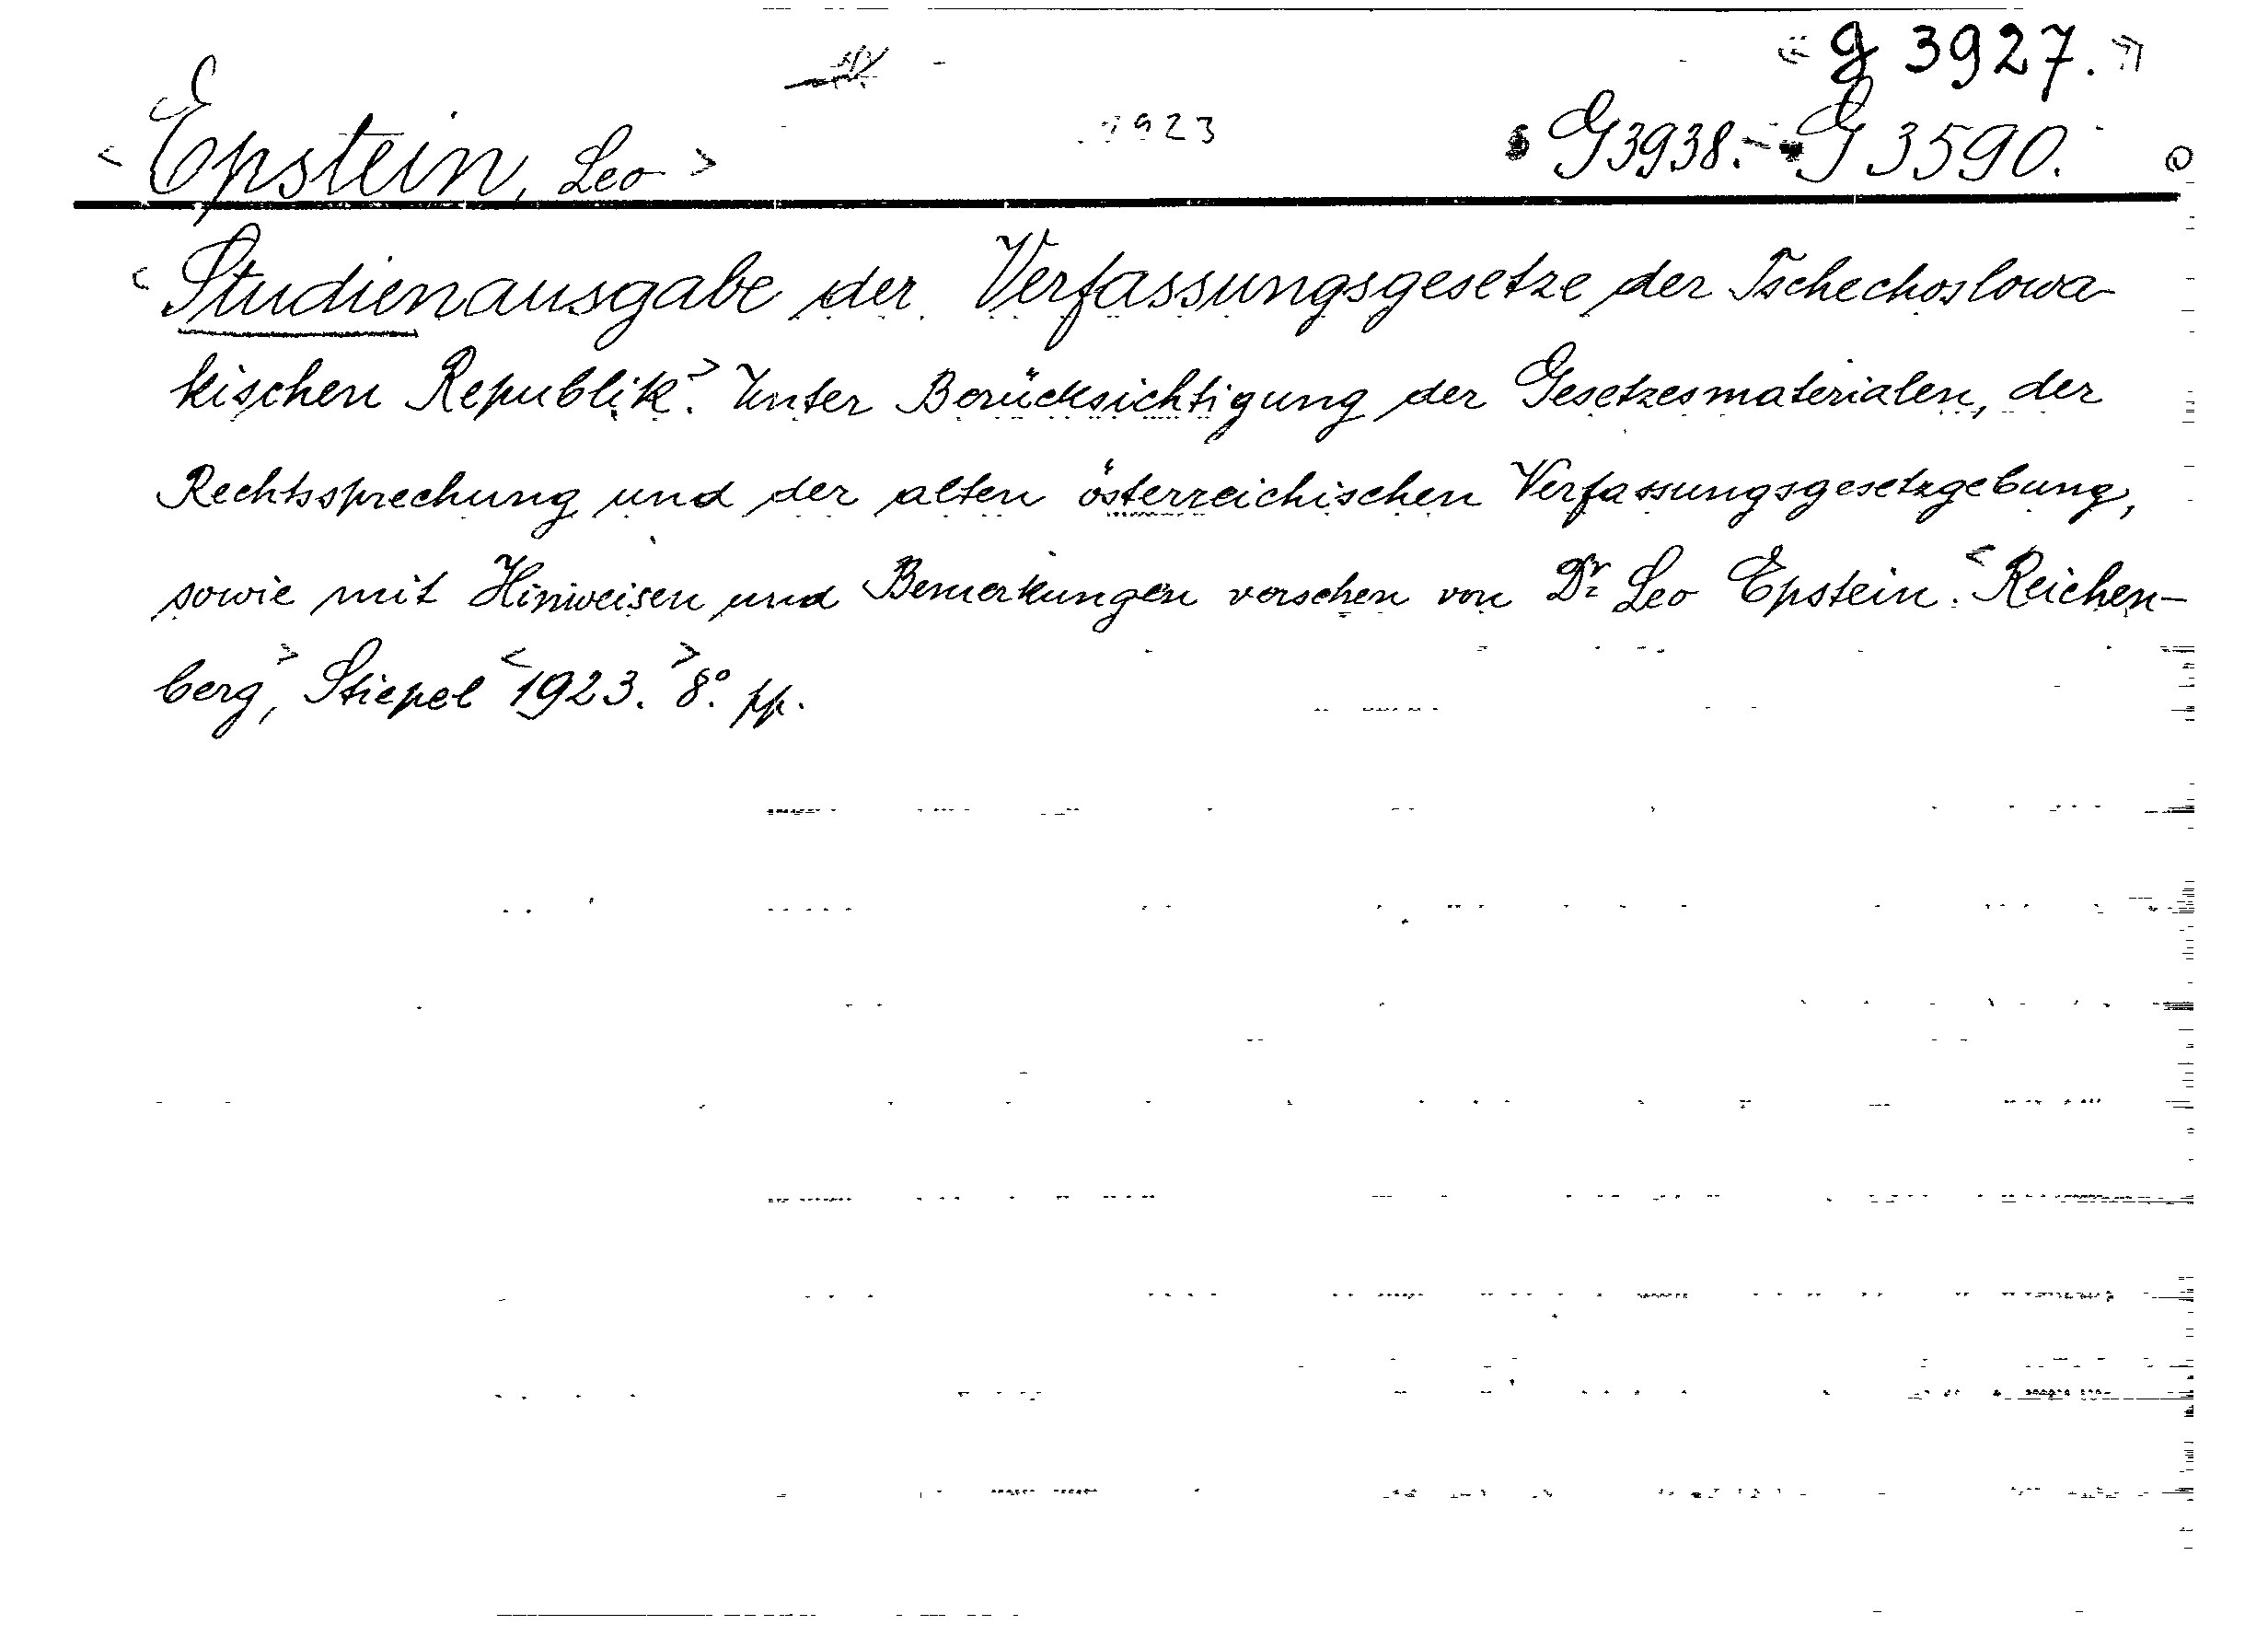 « g 3927. »
1923
G 3938. - G 3590.
< Epstein, Leo >
< Studienausgabe der Verfassungsgesetze der Tschechoslowa-
kischen Republik. > Unter Berücksichtigung der Gesetzesmaterialen, der
Rechtssprechung und der alten österreichischen Verfassungsgesetzgebung,
sowie mit Hinweisen und Bemerkungen versehen von Dr Leo Epstein. < Reichen-
berg, > Stiepel < 1923. > 8°. pp.